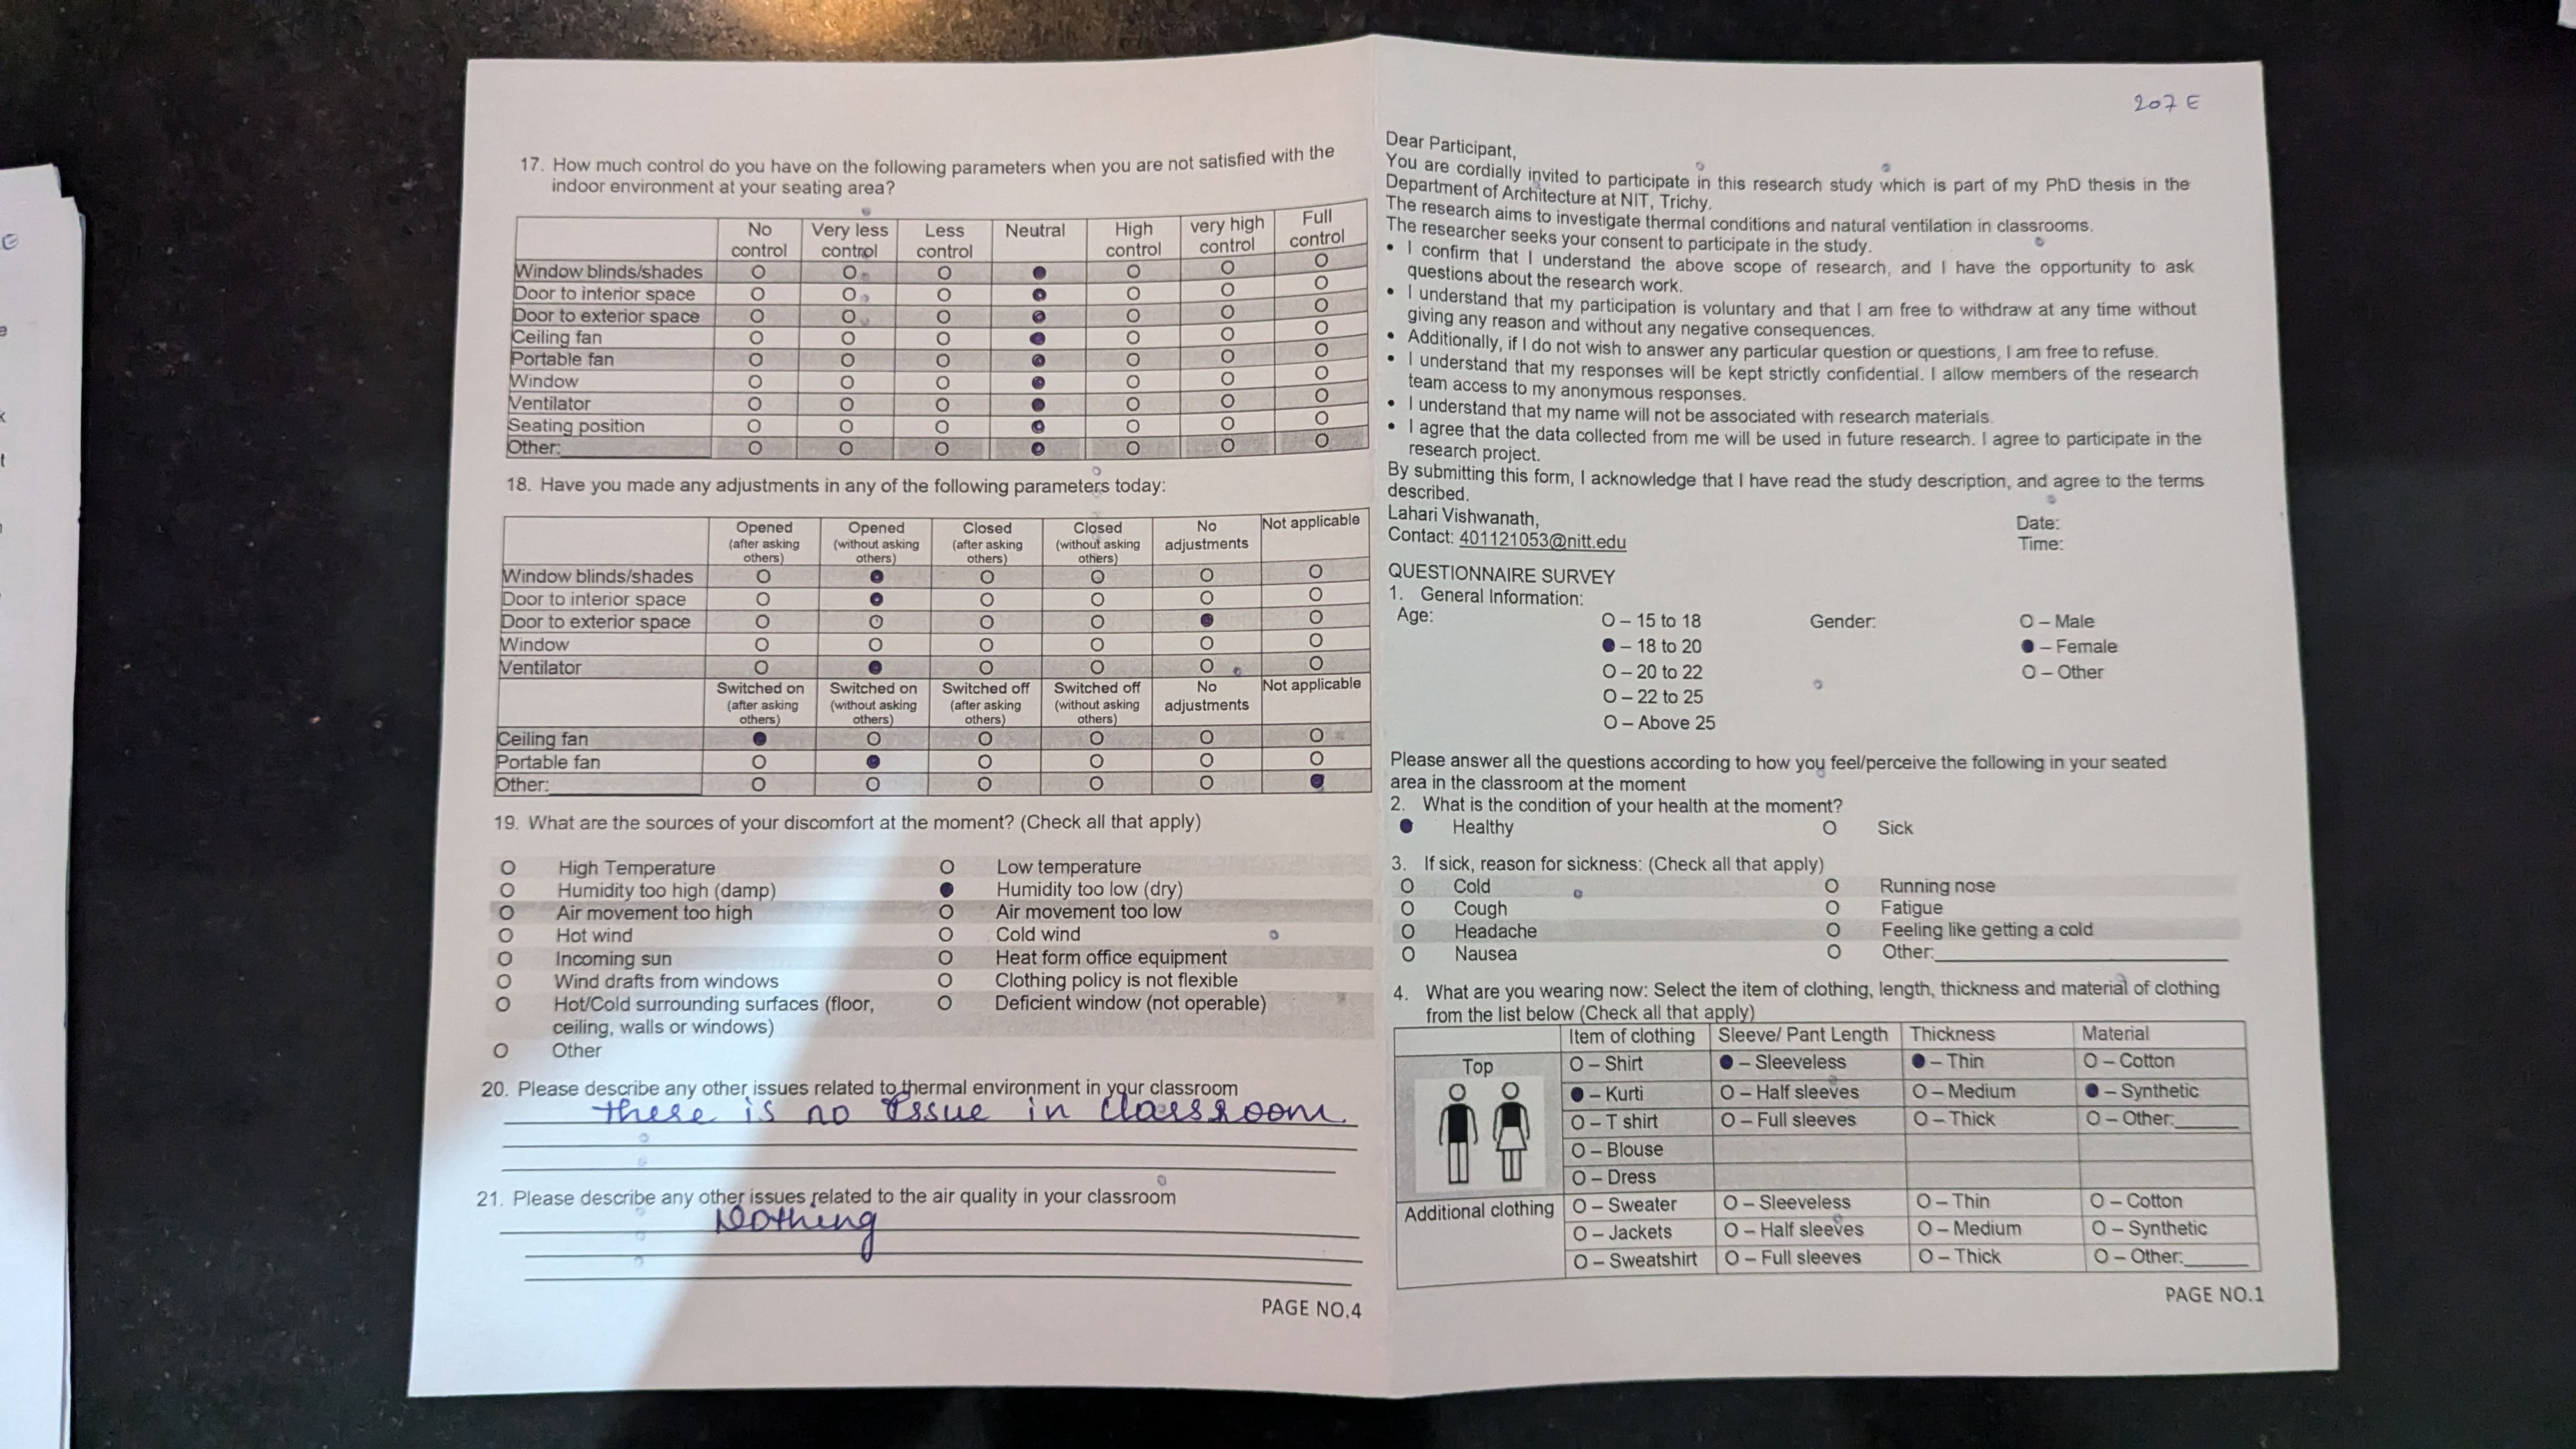 17. How much control do you have on the following parameters when you are not satisfied with the
indoor environment at your seating area?
No control Very less control Less control Neutral High control very high control Full control
Window blinds/shades O O O ● O O O
Door to interior space O O O ● O O O
Door to exterior space O O O ● O O O
Ceiling fan O O O ● O O O
Portable fan O O O ● O O O
Window O O O ● O O O
Ventilator O O O ● O O O
Seating position O O O ● O O O
Other: O O O ● O O O
18. Have you made any adjustments in any of the following parameters today:
Opened (after asking others) Opened (without asking others) Closed (after asking others) Closed (without asking others) No adjustments Not applicable
Window blinds/shades O ● O O O O
Door to interior space O ● O O O O
Door to exterior space O O O O ● O
Window O O O O O O
Ventilator O ● O O O O
Switched on (after asking others) Switched on (without asking others) Switched off (after asking others) Switched off (without asking others) No adjustments Not applicable
Ceiling fan ● O O O O O
Portable fan O ● O O O O
Other: O O O O O ●
19. What are the sources of your discomfort at the moment? (Check all that apply)
O High Temperature O Low temperature
O Humidity too high (damp) ● Humidity too low (dry)
O Air movement too high O Air movement too low
O Hot wind O Cold wind
O Incoming sun O Heat form office equipment
O Wind drafts from windows O Clothing policy is not flexible
O Hot/Cold surrounding surfaces (floor, O Deficient window (not operable)
ceiling, walls or windows)
O Other
20. Please describe any other issues related to thermal environment in your classroom
there is no issue in classroom.
21. Please describe any other issues related to the air quality in your classroom
Nothing
PAGE NO.4
207 E
Dear Participant,
You are cordially invited to participate in this research study which is part of my PhD thesis in the
Department of Architecture at NIT, Trichy.
The research aims to investigate thermal conditions and natural ventilation in classrooms.
The researcher seeks your consent to participate in the study.
• I confirm that I understand the above scope of research, and I have the opportunity to ask
questions about the research work.
• I understand that my participation is voluntary and that I am free to withdraw at any time without
giving any reason and without any negative consequences.
• Additionally, if I do not wish to answer any particular question or questions, I am free to refuse.
• I understand that my responses will be kept strictly confidential. I allow members of the research
team access to my anonymous responses.
• I understand that my name will not be associated with research materials.
• I agree that the data collected from me will be used in future research. I agree to participate in the
research project.
By submitting this form, I acknowledge that I have read the study description, and agree to the terms
described.
Lahari Vishwanath, Date:
Contact: 401121053@nitt.edu Time:
QUESTIONNAIRE SURVEY
1. General Information:
Age: O – 15 to 18 Gender: O – Male
● – 18 to 20 ● – Female
O – 20 to 22 O – Other
O – 22 to 25
O – Above 25
Please answer all the questions according to how you feel/perceive the following in your seated
area in the classroom at the moment
2. What is the condition of your health at the moment?
● Healthy O Sick
3. If sick, reason for sickness: (Check all that apply)
O Cold O Running nose
O Cough O Fatigue
O Headache O Feeling like getting a cold
O Nausea O Other:
4. What are you wearing now: Select the item of clothing, length, thickness and material of clothing
from the list below (Check all that apply)
Item of clothing Sleeve/ Pant Length Thickness Material
Top O – Shirt ● – Sleeveless ● – Thin O – Cotton
● – Kurti O – Half sleeves O – Medium ● – Synthetic
O – T shirt O – Full sleeves O – Thick O – Other:
O – Blouse
O – Dress
Additional clothing O – Sweater O – Sleeveless O – Thin O – Cotton
O – Jackets O – Half sleeves O – Medium O – Synthetic
O – Sweatshirt O – Full sleeves O – Thick O – Other:
PAGE NO.1